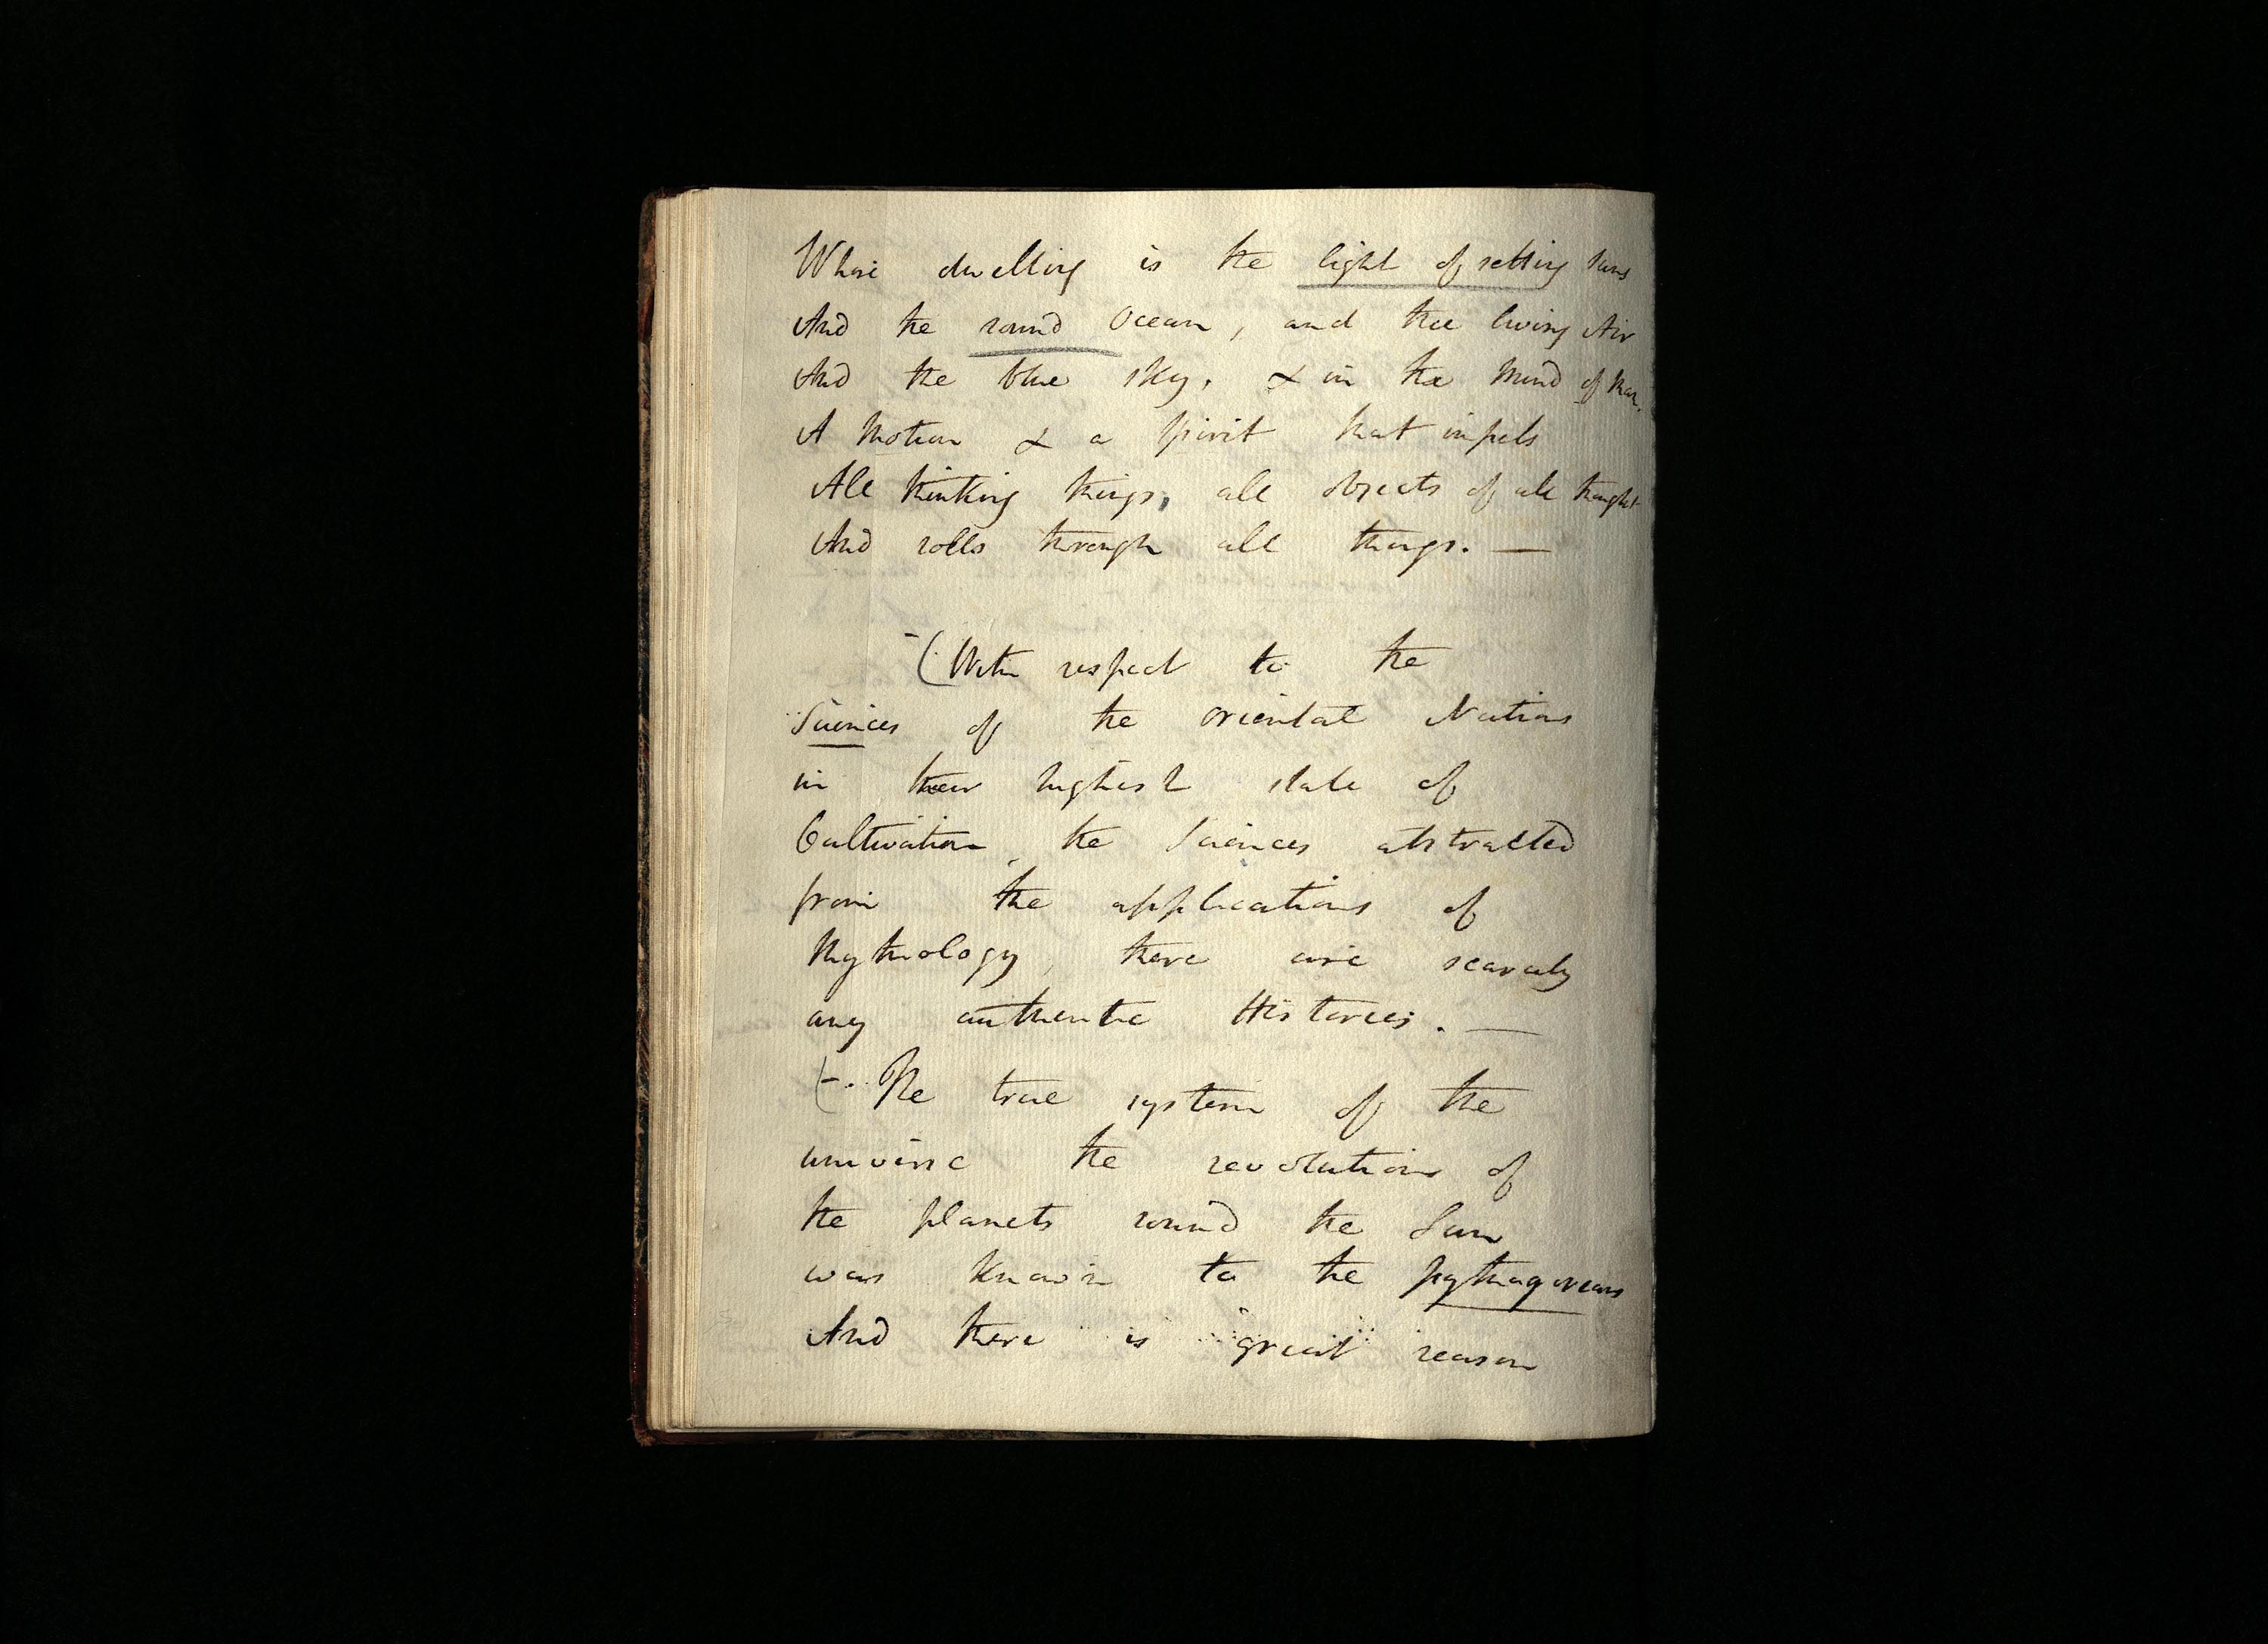 Whose dwelling is the light of setting suns
And the round Ocean, and the living Air
And the blue sky, & in the Mind of Man.
A Motion & a Spirit that impels
All thinking things, all objects of all thought
And rolls through all things. —
- (With respect to the
Sciences of the oriental Nations
in their highest state of
Cultivation the Sciences abstracted
from the applications of
Mythology, there are scarcely
any authentic Histories. —
(-. The true system of the
universe the revolutions of
the planets round the Sun
was known to the pythagoreans
And there is great reason